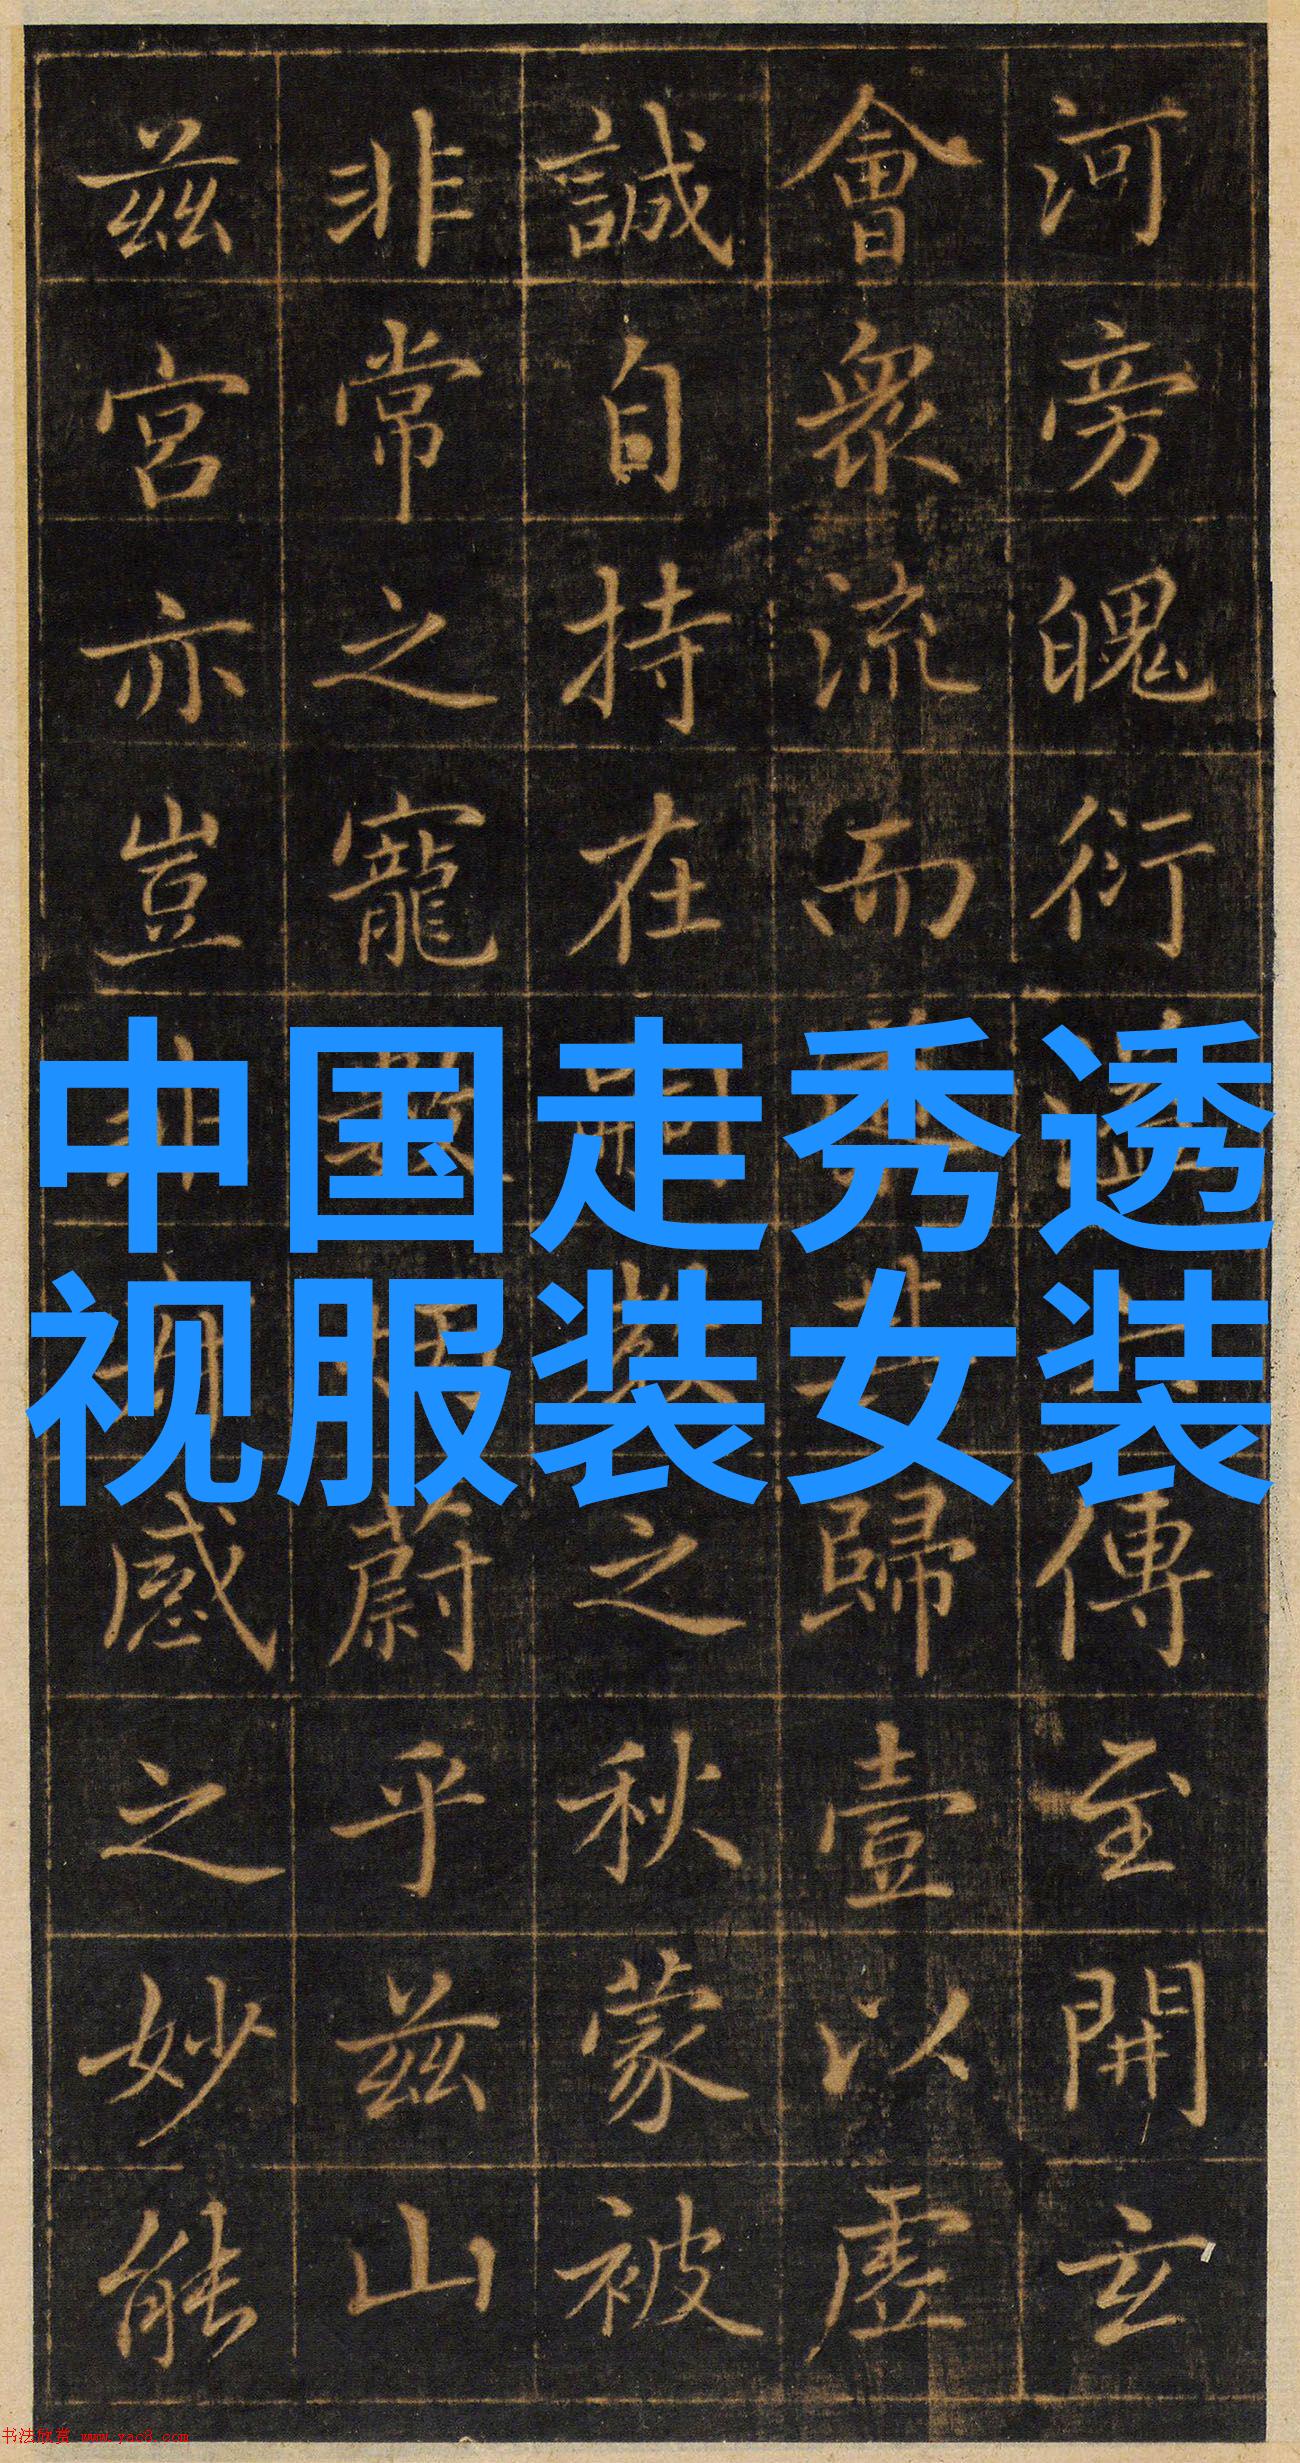 河旁魄衍傳至開玄
會衆流而歸壹以虛
誠自持在之秋蒙被
非常之寵蔚乎茲山
茲宮亦豈感之妙能
中国走秀透
视服装女装
书法欣赏 www.yac8.com